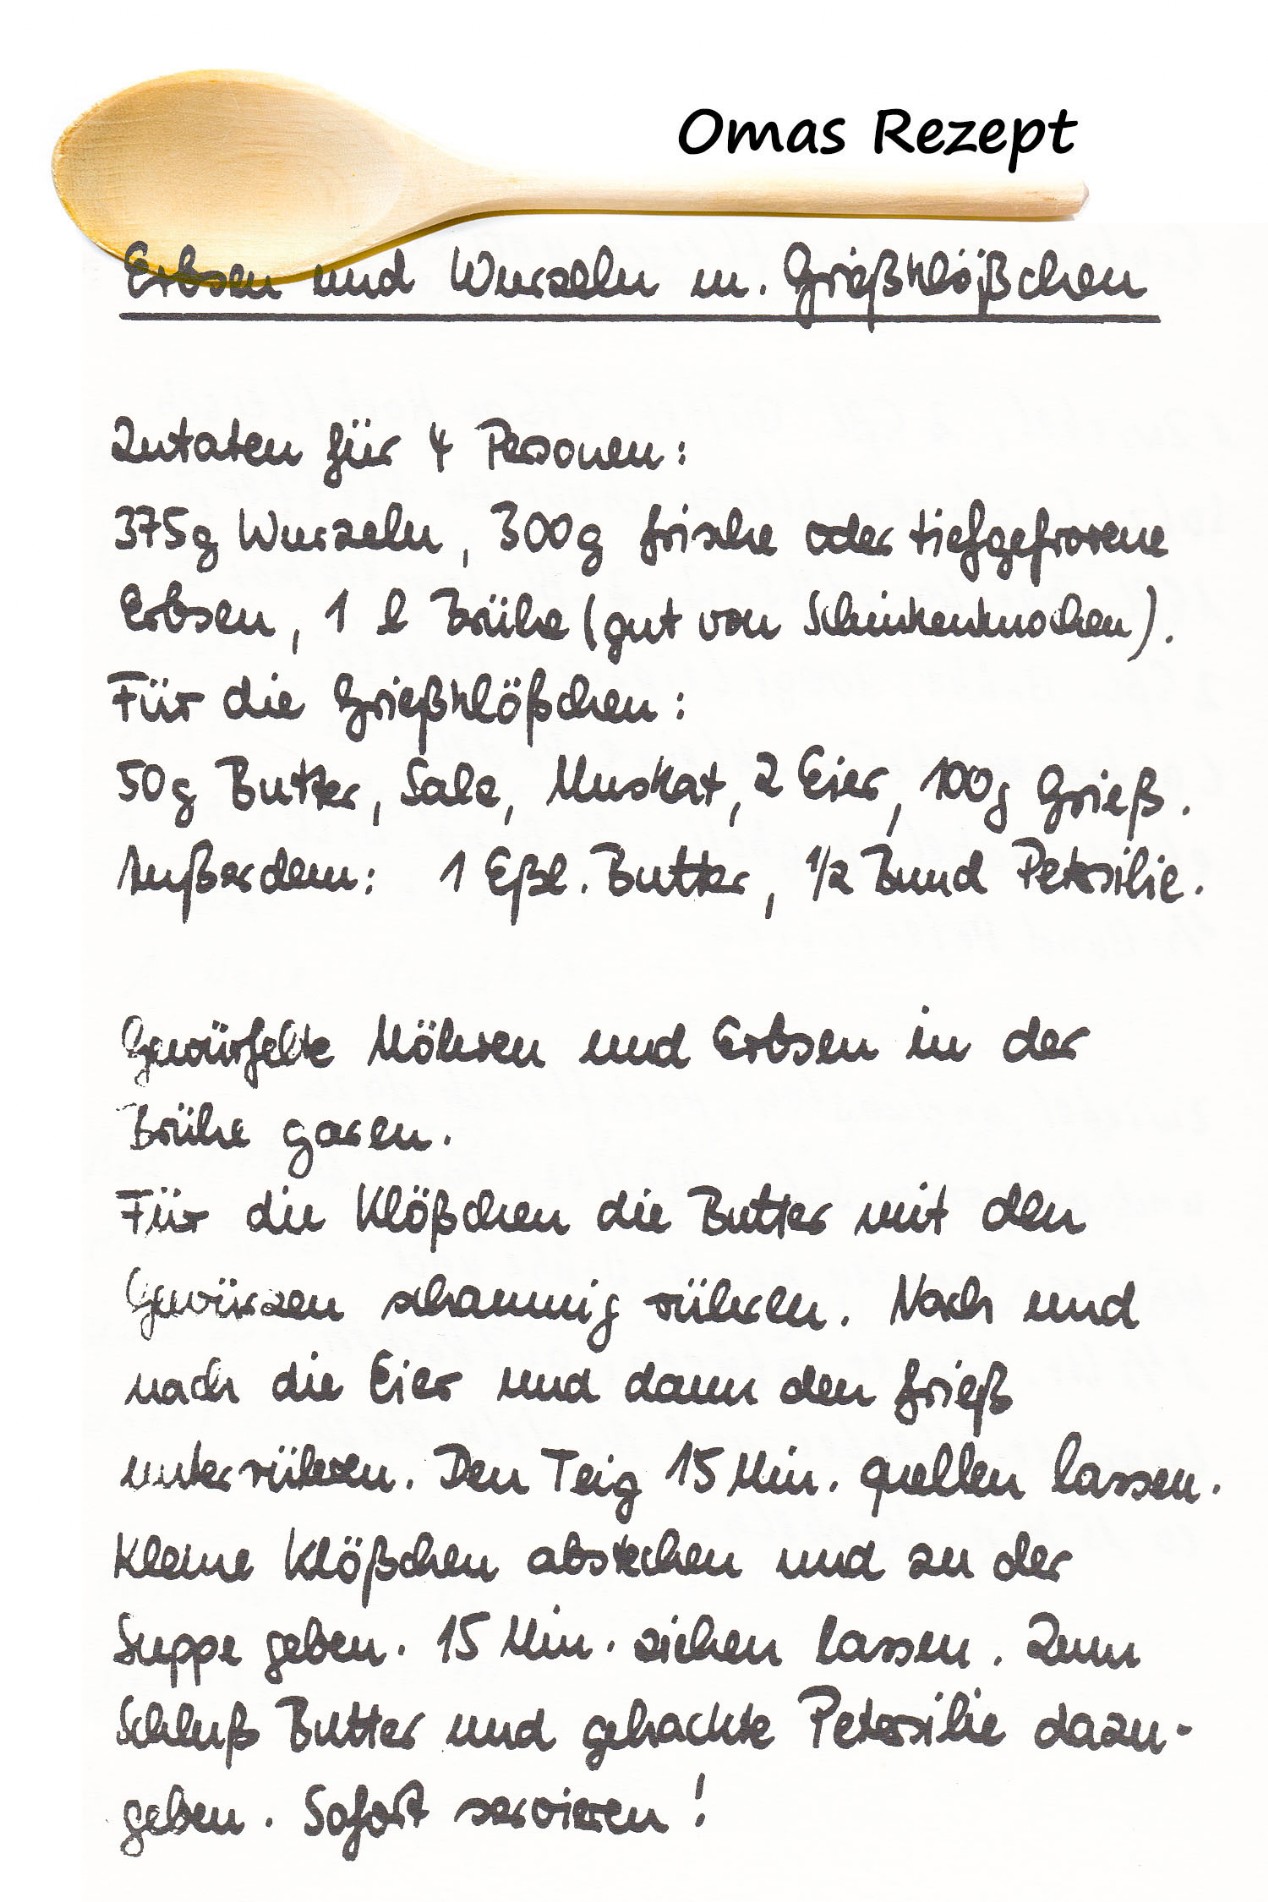 Omas Rezept
Erbsen und Wurzeln m. Grießklößchen
Zutaten für 4 Personen:
375g Wurzeln, 300g frische oder tiefgefrorene
Erbsen, 1 l Brühe (gut von Schinkenknochen).
Für die Grießklößchen:
50g Butter, Salz, Muskat, 2 Eier, 100g Grieß.
Außerdem: 1 Eßl. Butter, 1/2 Bund Petersilie.
Gewürfelte Möhren und Erbsen in der
Brühe garen.
Für die Klößchen die Butter mit den
Gewürzen schaumig rühren. Nach und
nach die Eier und dann den Grieß
unterrühren. Den Teig 15 Min. quellen lassen.
Kleine Klößchen abstechen und zu der
Suppe geben. 15 Min. ziehen lassen. Zum
Schluß Butter und gehackte Petersilie dazu-
geben. Sofort servieren!